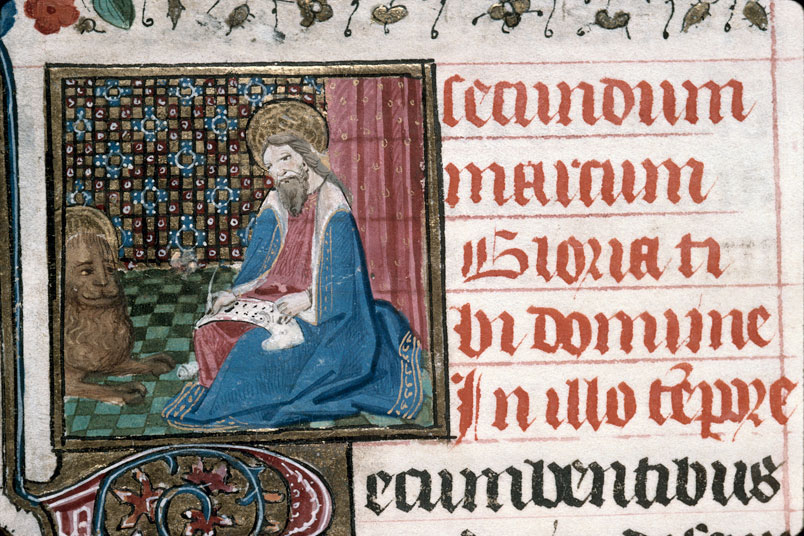 secundum
marcum
Gloria ti
bi domine
In illo tēpore
ecumbentibus